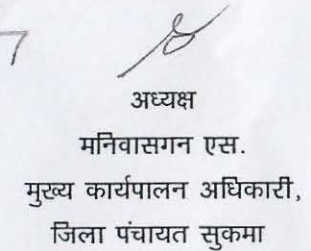 अध्यक्ष
मनिवासगन एस.
मुख्य कार्यपालन अधिकारी,
जिला पंचायत सुकमा